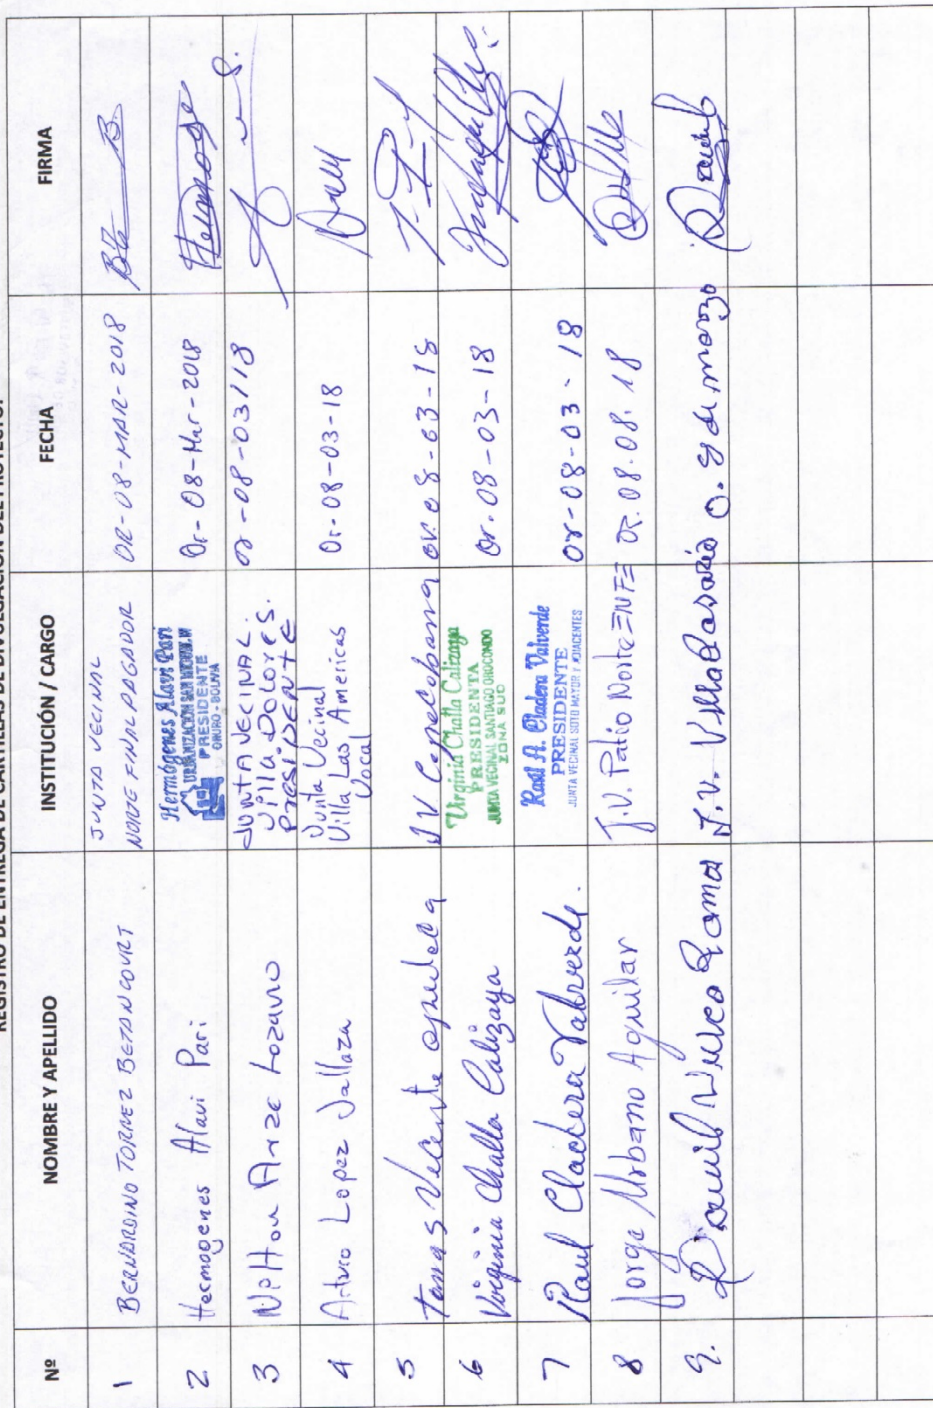 REGISTRO DE ENTREGA DE CARTILLAS DE DIVULGACIÓN DEL PROYECTO:
Nº NOMBRE Y APELLIDO INSTITUCIÓN / CARGO FECHA FIRMA
1 BERNARDINO TORREZ BETANCOURT JUNTA VECINAL
NORTE FINAL PAGADOR OR-08-MAR-2018
2 Hermogenes Alavi Pari Hermógenes Alavi Pari
PRESIDENTE
ORURO - BOLIVIA Or-08-Mar-2018
3 Arze Lozano JUNTA VECINAL.
Villa. Dolores.
PresiDENTE or-08-03/18
4 Arturo Lopez Junta Vecinal
Villa Las Americas
Vocal Or-08-03-18
5 Vicente J.V. Copacabana or. 08-03-18
6 Virginia Challa Calizaya Virginia Challa Calizaya
PRESIDENTA
JUNTA VECINAL SANTIAGO OROCONDO
ZONA SUD Or. 08-03-18
7 Raul Cladera Valverde. Raul A. Cladera Valverde
PRESIDENTE
JUNTA VECINAL SOTO MAYOR Y ADYACENTES or-08-03-18
8 Jorge Urbano Aguilar J.V. Patio Norte ENFE or. 08.08.18
9. J.V. Villa Rosario O. 8 de marzo